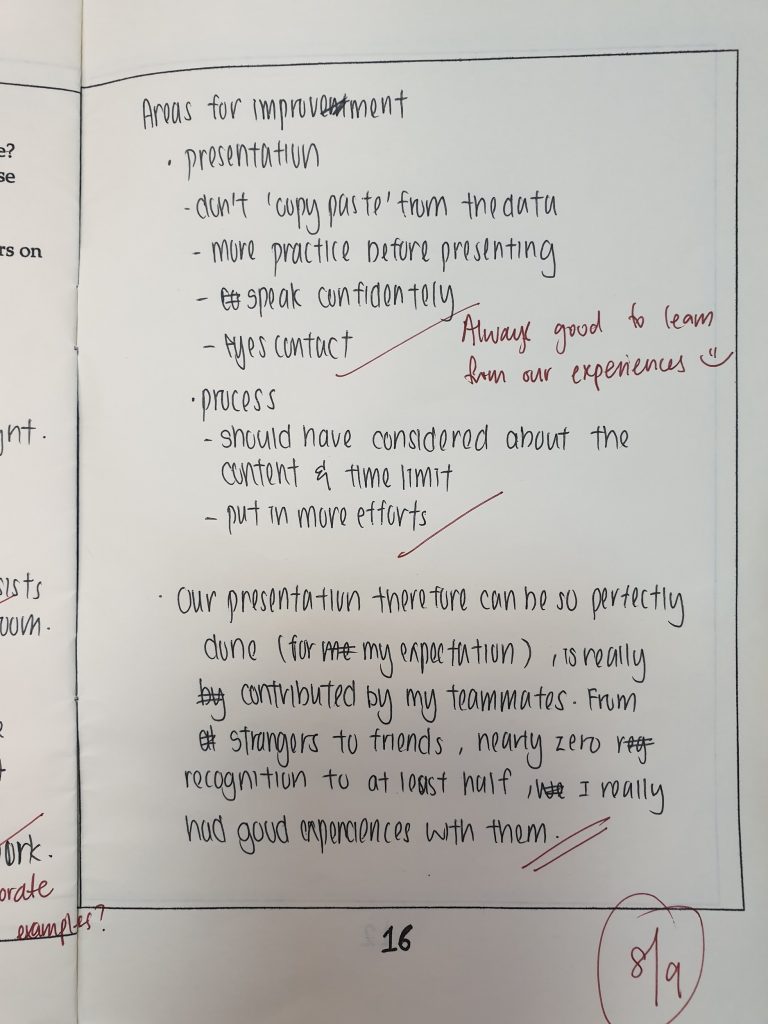 e?
se
rs on
ght.
sists
room.
work.
orate
examples?
Areas for improvement
· presentation
- don't 'copy paste' from the data
- more practice before presenting
- speak confidentely
- eyes contact
Always good to learn
from our experiences
· process
- should have considered about the
content & time limit
- put in more efforts
· Our presentation therefore can be so perfectly
done (for me my expectation), is really
by contributed by my teammates. From
strangers to friends, nearly zero reg
recognition to at least half, we I really
had good experciences with them.
16
8/9